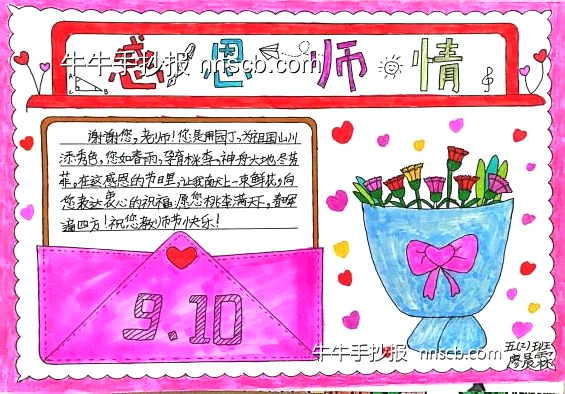 感恩师情
牛牛手抄报 nnscb.com
谢谢您,老师!您是用园丁,为祖国山川
添秀色,您如春雨,孕育桃李,神舟大地尽芳
菲,在这感恩的节日里,让我献上一束鲜花,向
您表达衷心的祝福:愿您桃李满天下,春晖
遍四方!祝您教师节快乐!
9.10
牛牛手抄报 nnscb.com
五(2)班
廖晨霖